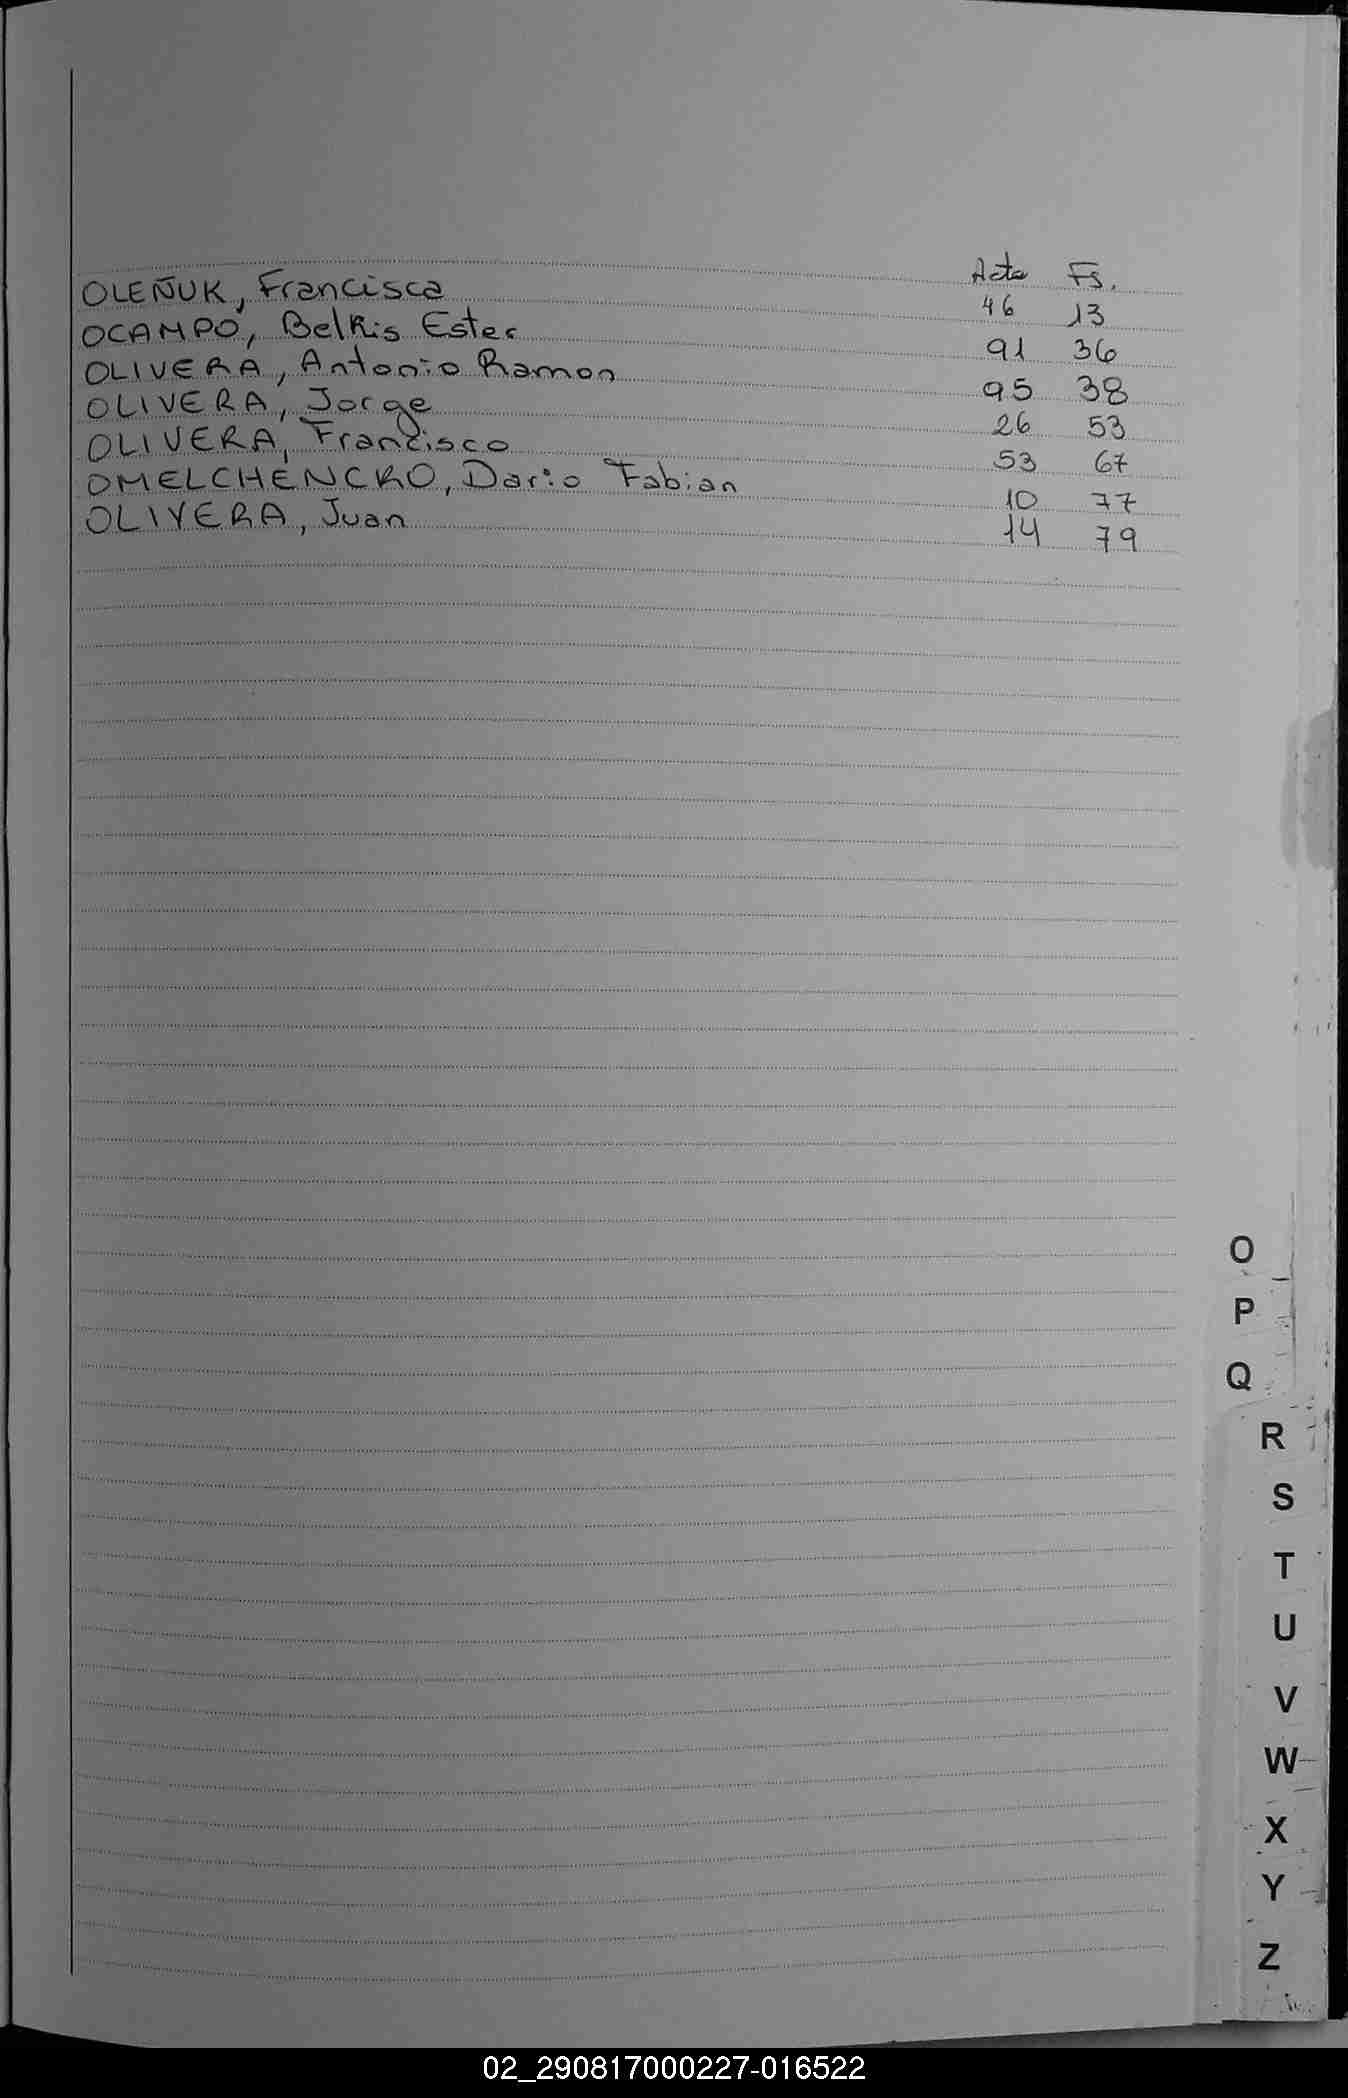 Acta Fs.
OLEÑUK, Francisca 46 13
OCAMPO, Belkis Ester 91 36
OLIVERA, Antonio Ramon 95 38
OLIVERA, Jorge 26 53
OLIVERA, Francisco 53 67
OMELCHENCKO, Dario Fabian 10 77
OLIVERA, Juan 14 79
O
P
Q
R
S
T
U
V
W
X
Y
Z
02_290817000227-016522